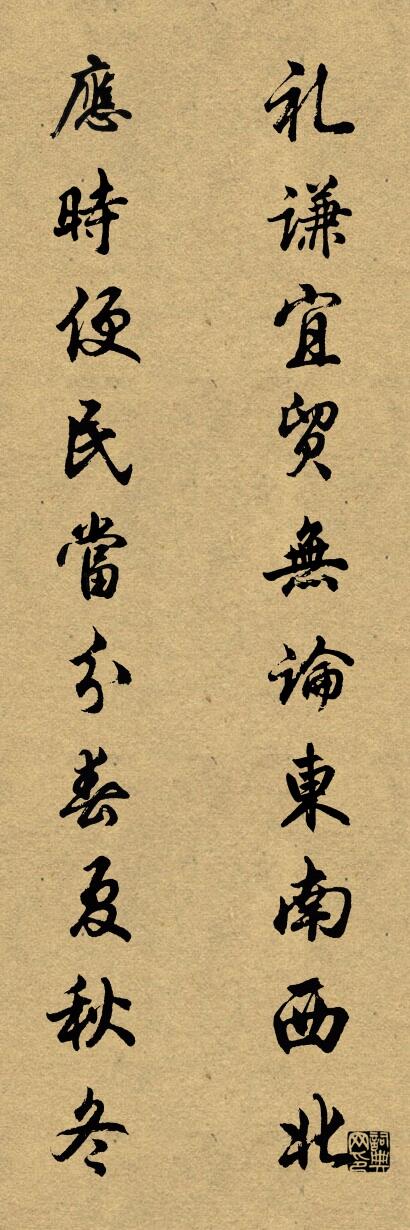 礼谦宜貿無論東南西北
應時便民當分春夏秋冬
詞典网印